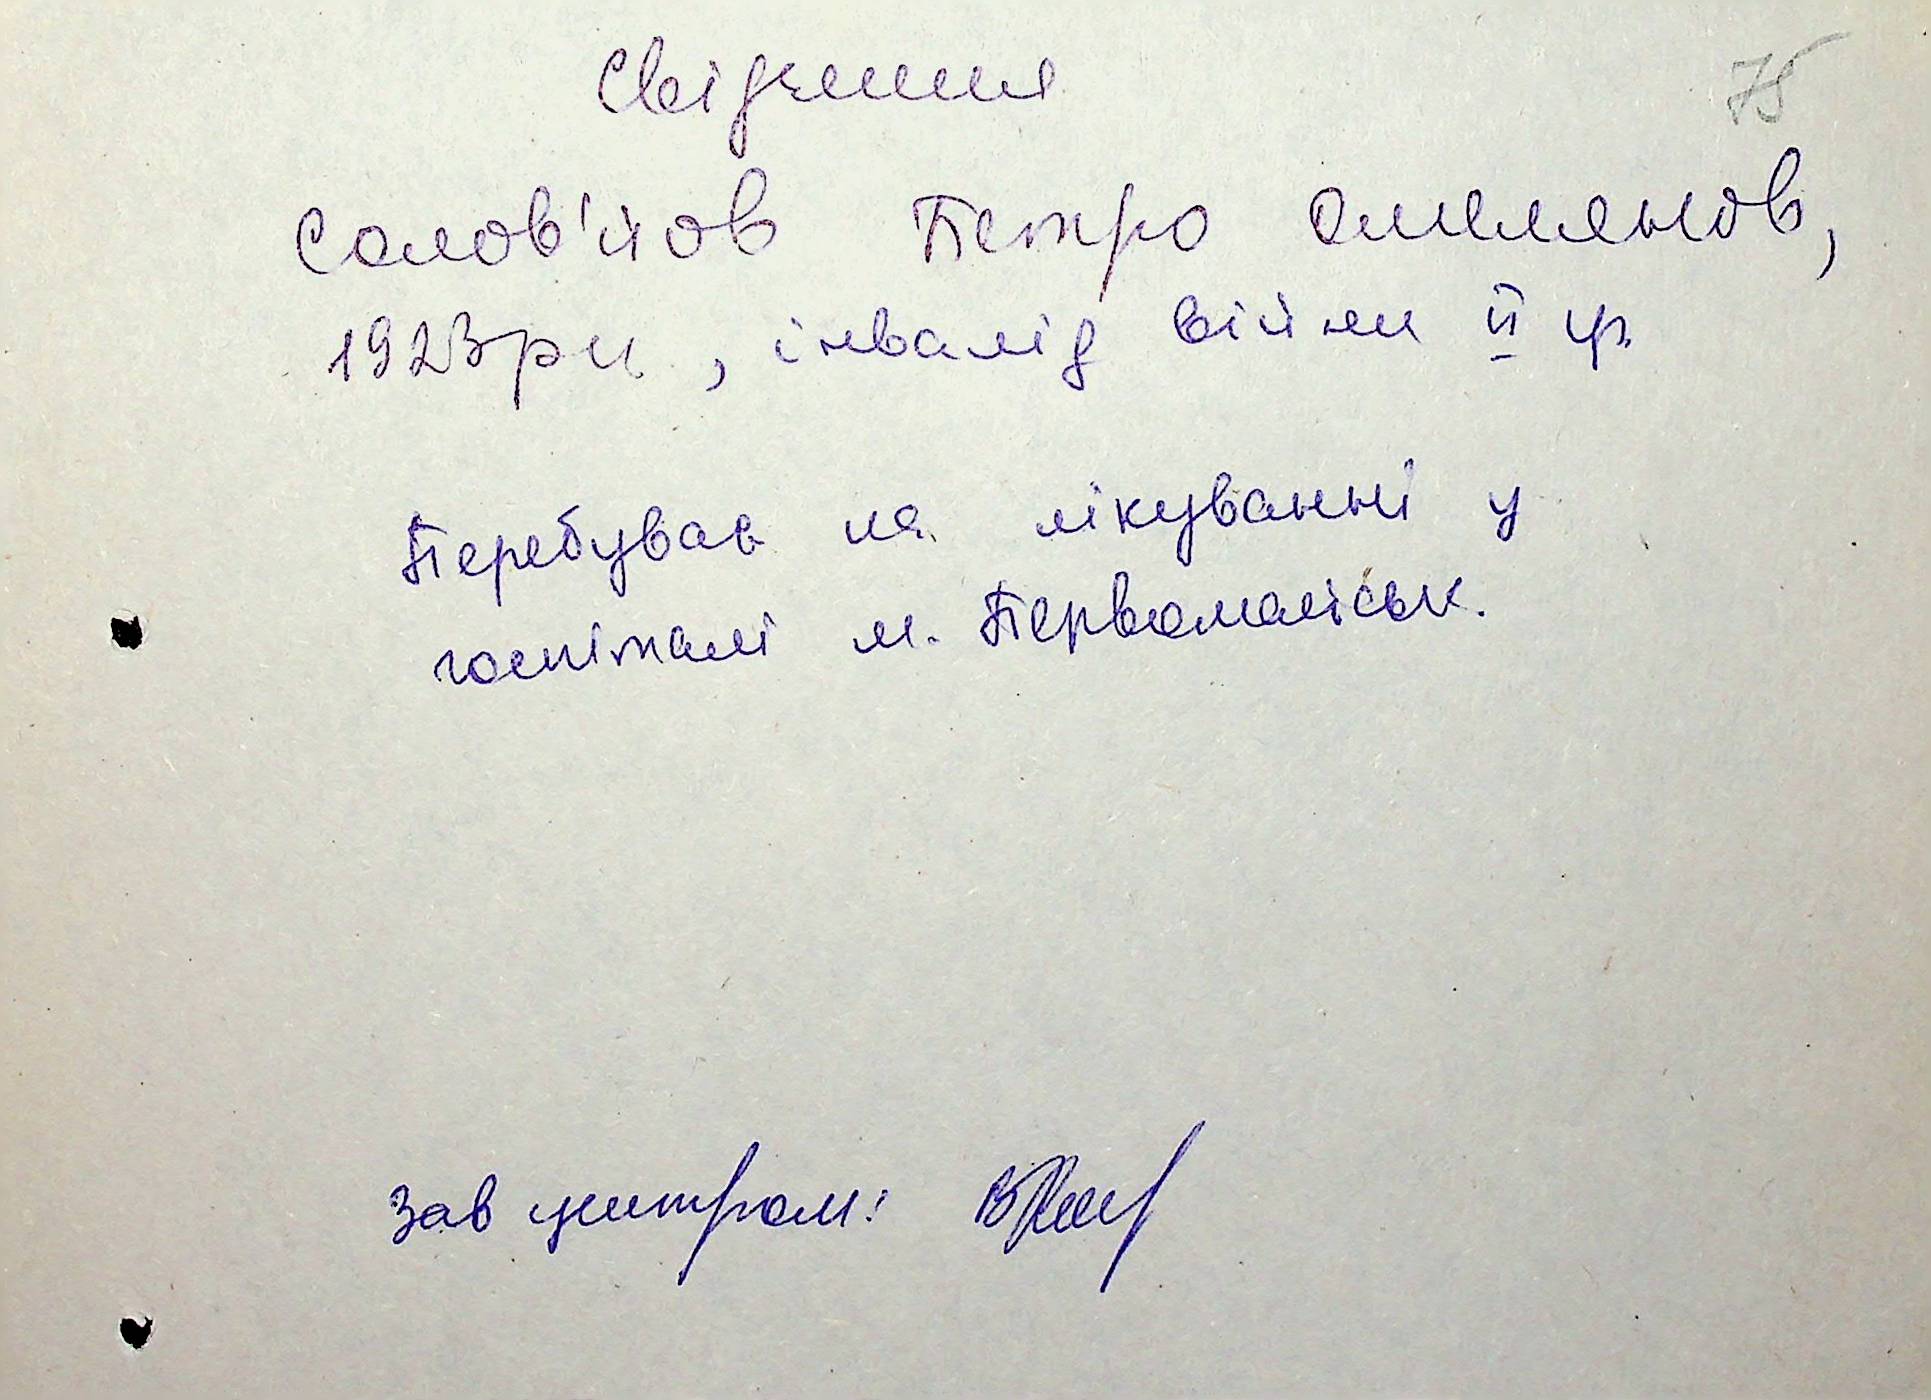 75
Свідчення
Солов'йов Петро Омелянов,
1923рн, інвалід війни ІІ гр.
Перебував на лікуванні у
госпіталі м. Первомайськ.
Зав центром: